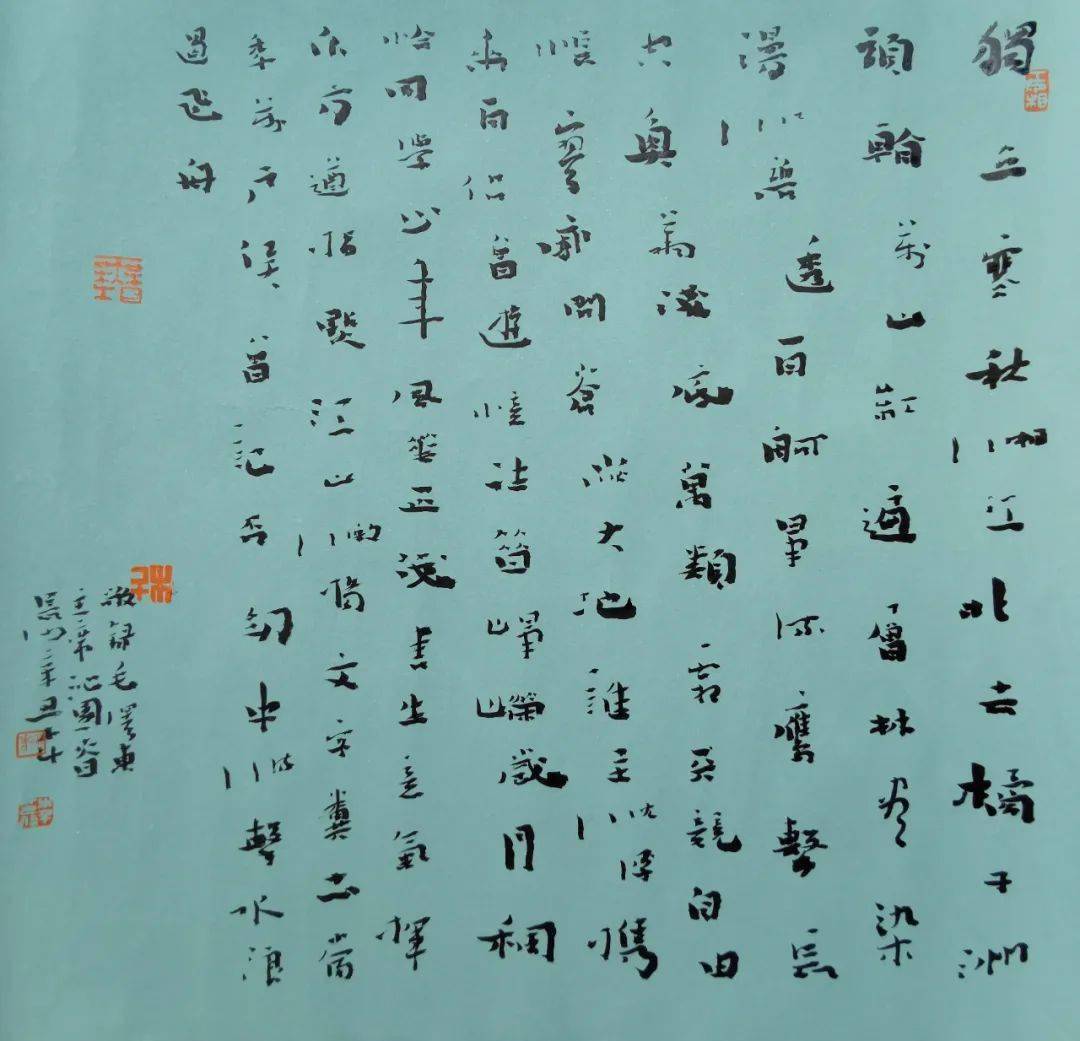 獨立寒秋湘江北去橘子洲
頭看萬山紅遍層林盡染
漫江碧透百舸爭流鷹擊長
空魚翔淺底萬類霜天競自由
悵寥廓問蒼茫大地誰主沉浮攜
來百侶曾遊憶往昔崢嶸歲月稠
恰同學少年風華正茂書生意氣揮
斥方遒指點江山激揚文字糞土當
年萬戶侯曾記否到中流擊水浪
遏飛舟
敬録毛澤東
主席沁園春
長沙辛丑年